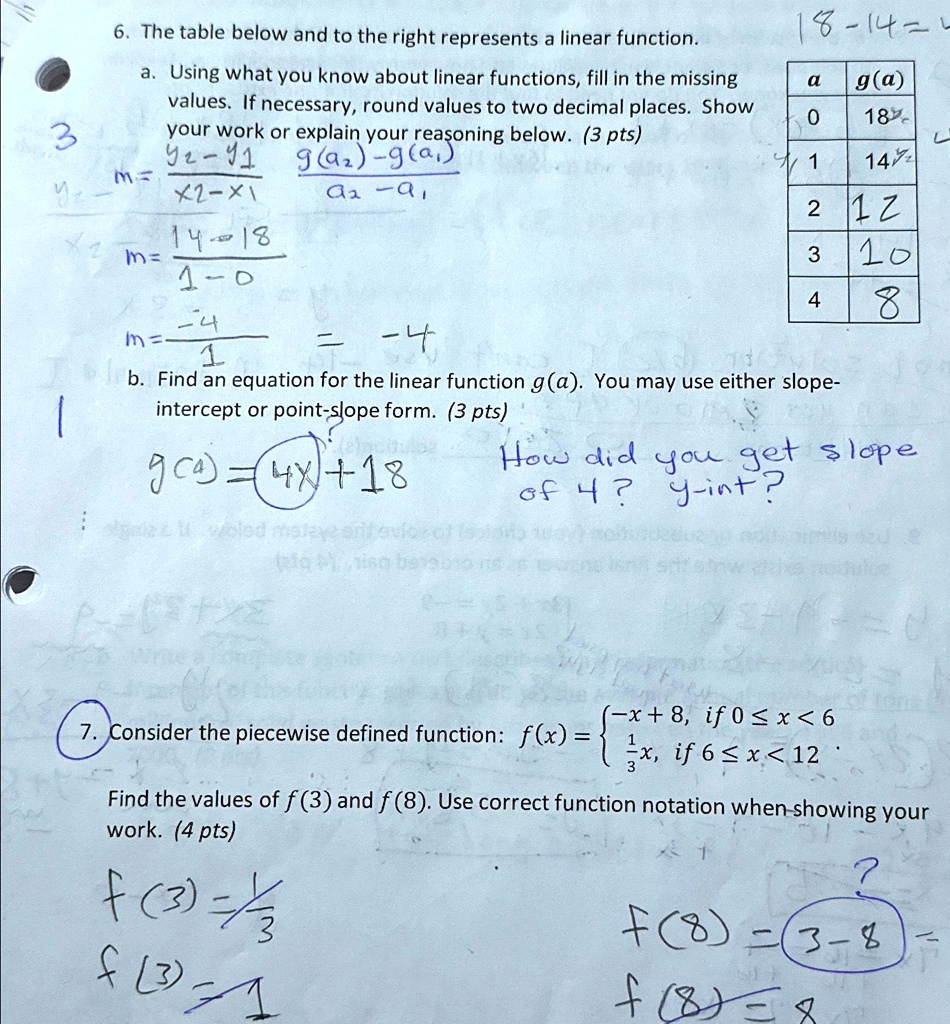 18-14=
6. The table below and to the right represents a linear function.
a. Using what you know about linear functions, fill in the missing
values. If necessary, round values to two decimal places. Show
your work or explain your reasoning below. (3 pts)
3
a g(a)
0 18
1 14
2 12
3 10
4 8
m= y2-y1 / x2-x1 g(a2)-g(a1) / a2-a1
m= 14-18 / 1-0
m= -4 / 1 = -4
b. Find an equation for the linear function g(a). You may use either slope-
intercept or point-slope form. (3 pts)
1
?
g(a) = 4x+18
How did you get slope
of 4? y-int?
7. Consider the piecewise defined function: f(x) = { -x + 8, if 0 ≤ x < 6
1/3 x, if 6 ≤ x < 12 .
Find the values of f(3) and f(8). Use correct function notation when showing your
work. (4 pts)
f(3) = 1/3
f(3) = 1
?
f(8) = 3-8 =
f(8) = 8